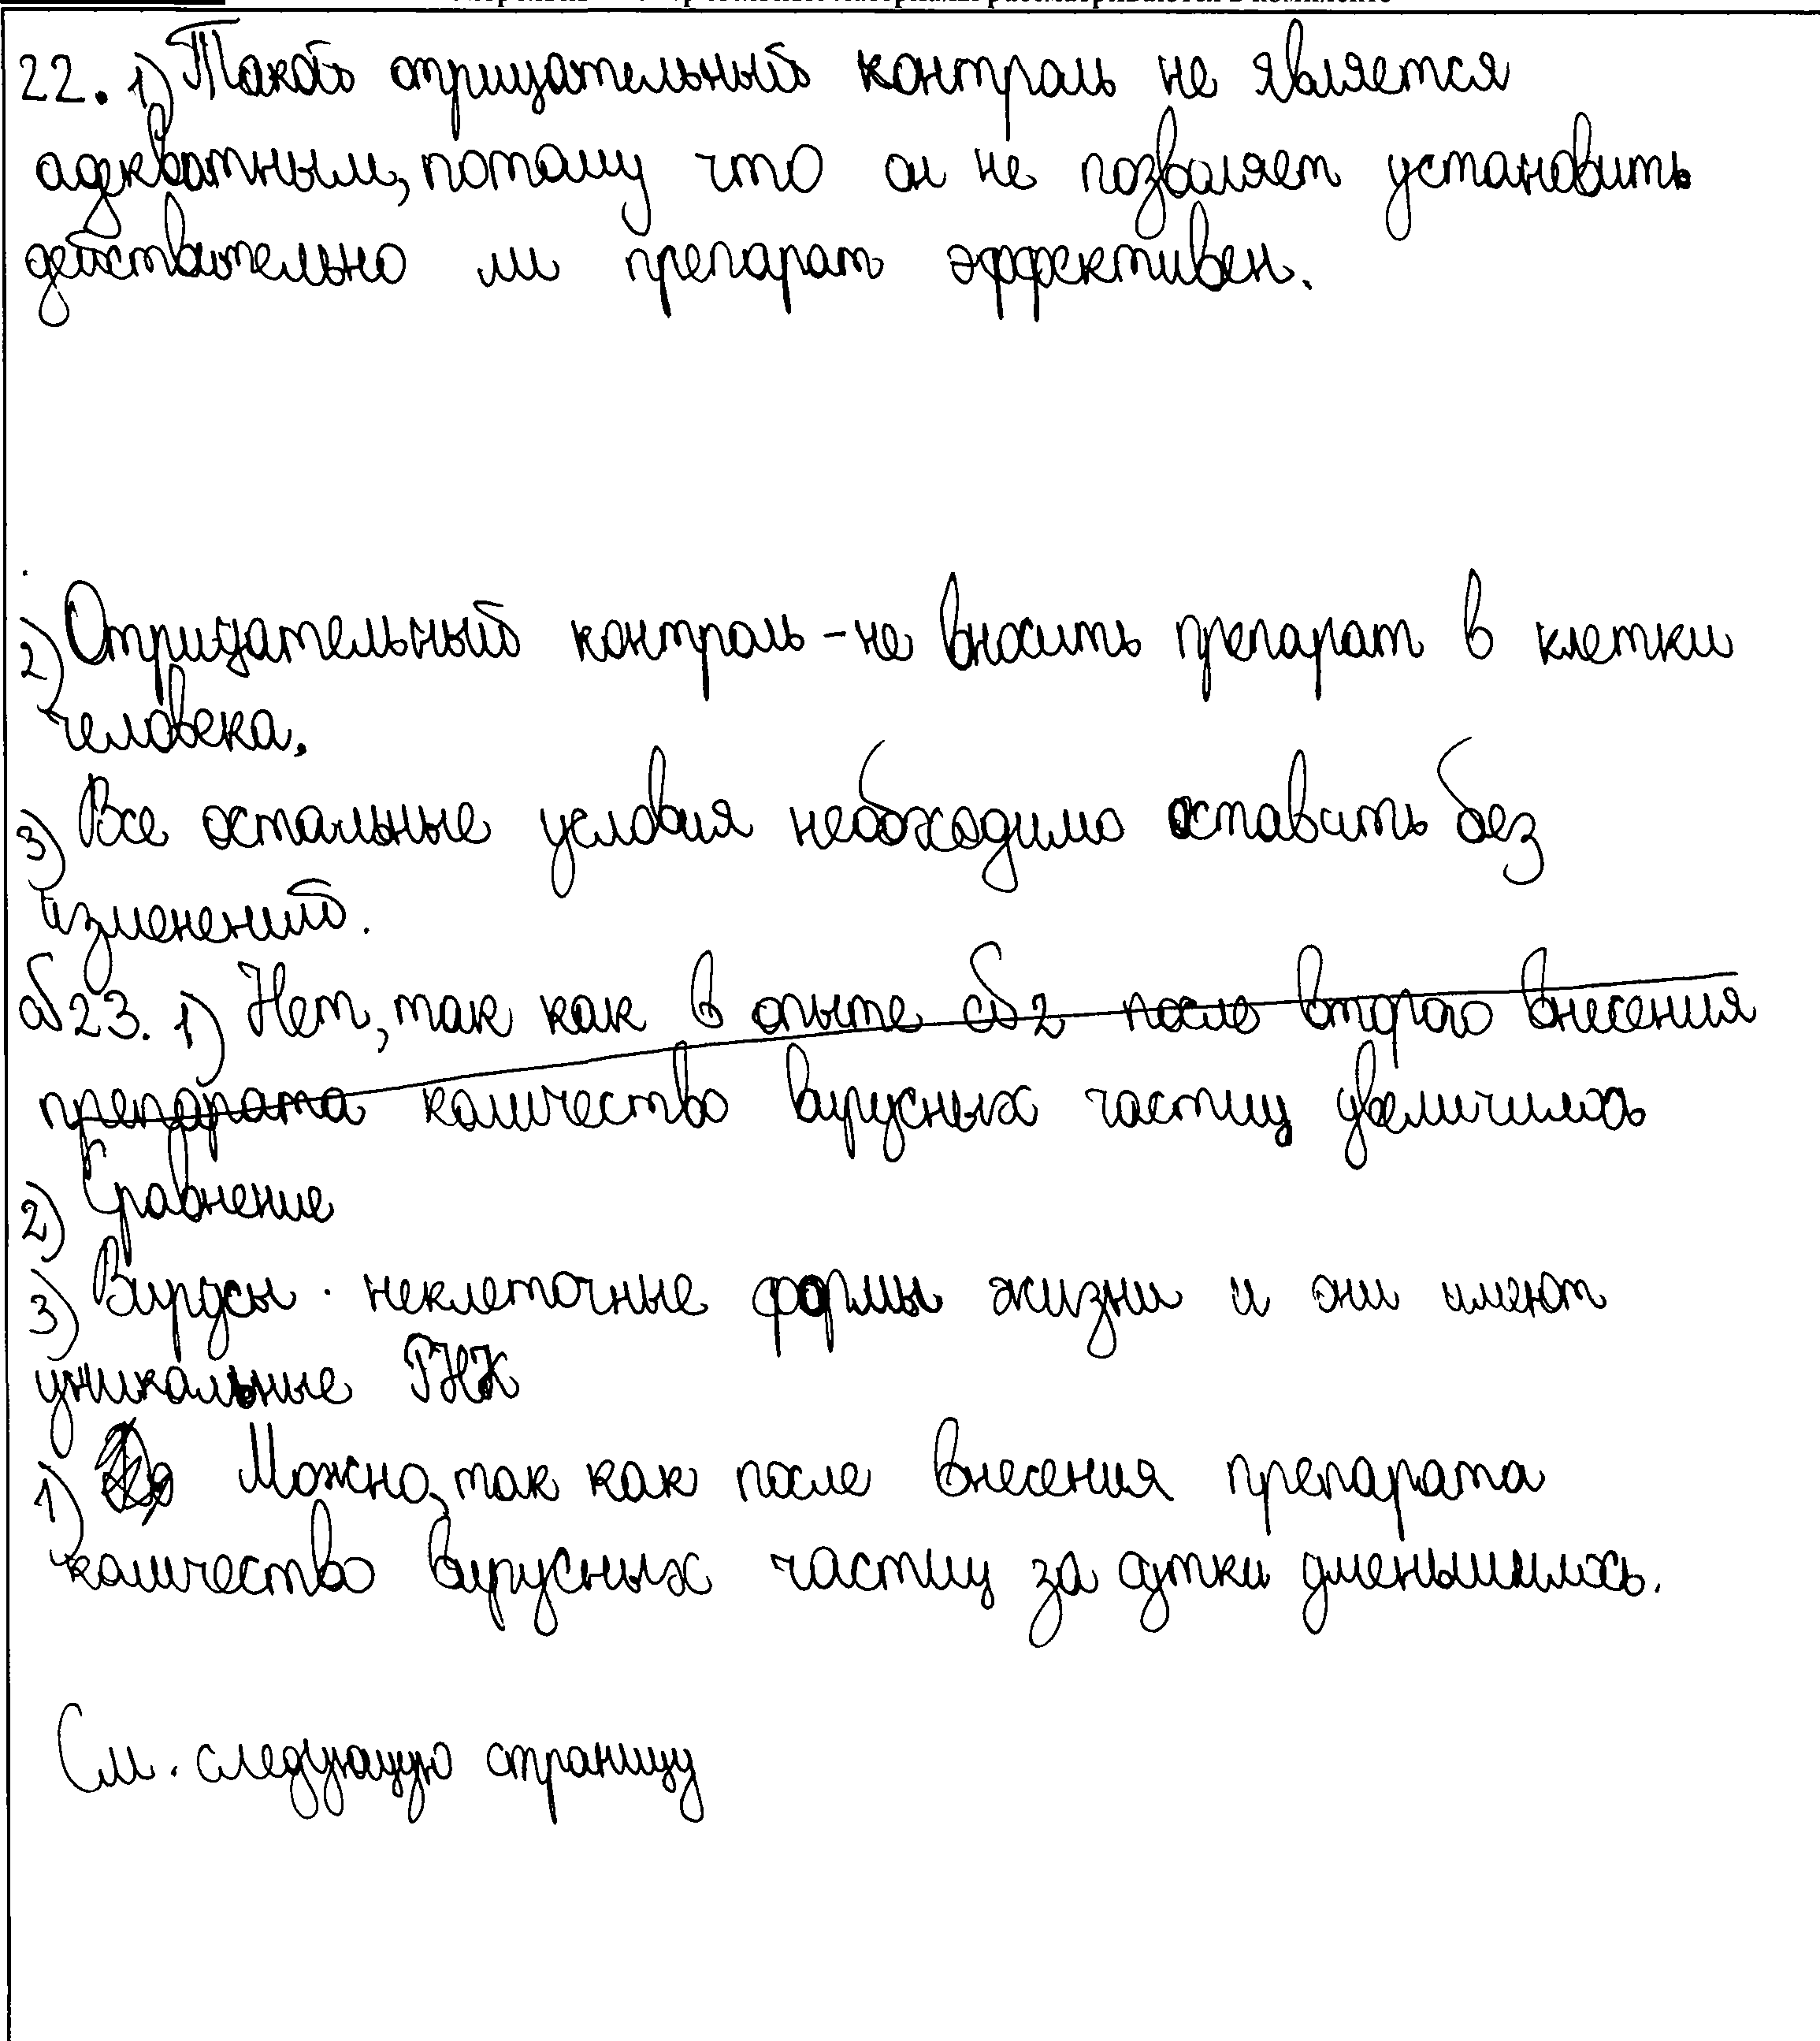 22. 1) Такой отрицательный контроль не является
адекватным, потому что он не позволяет установить
действительно ли препарат эффективен.
2) Отрицательный контроль - не вносить препарат в клетки
человека.
3) Все остальные условия необходимо оставить без
изменений.
23. 1) Нет, так как в опыте 2 после второго внесения
препарата количество вирусных частиц увеличилось
2) Сравнение
3) Вирусы - неклеточные формы жизни и они имеют
уникальные РНК
1) Можно, так как после внесения препарата
количество вирусных частиц за сутки уменьшилось.
См. следующую страницу